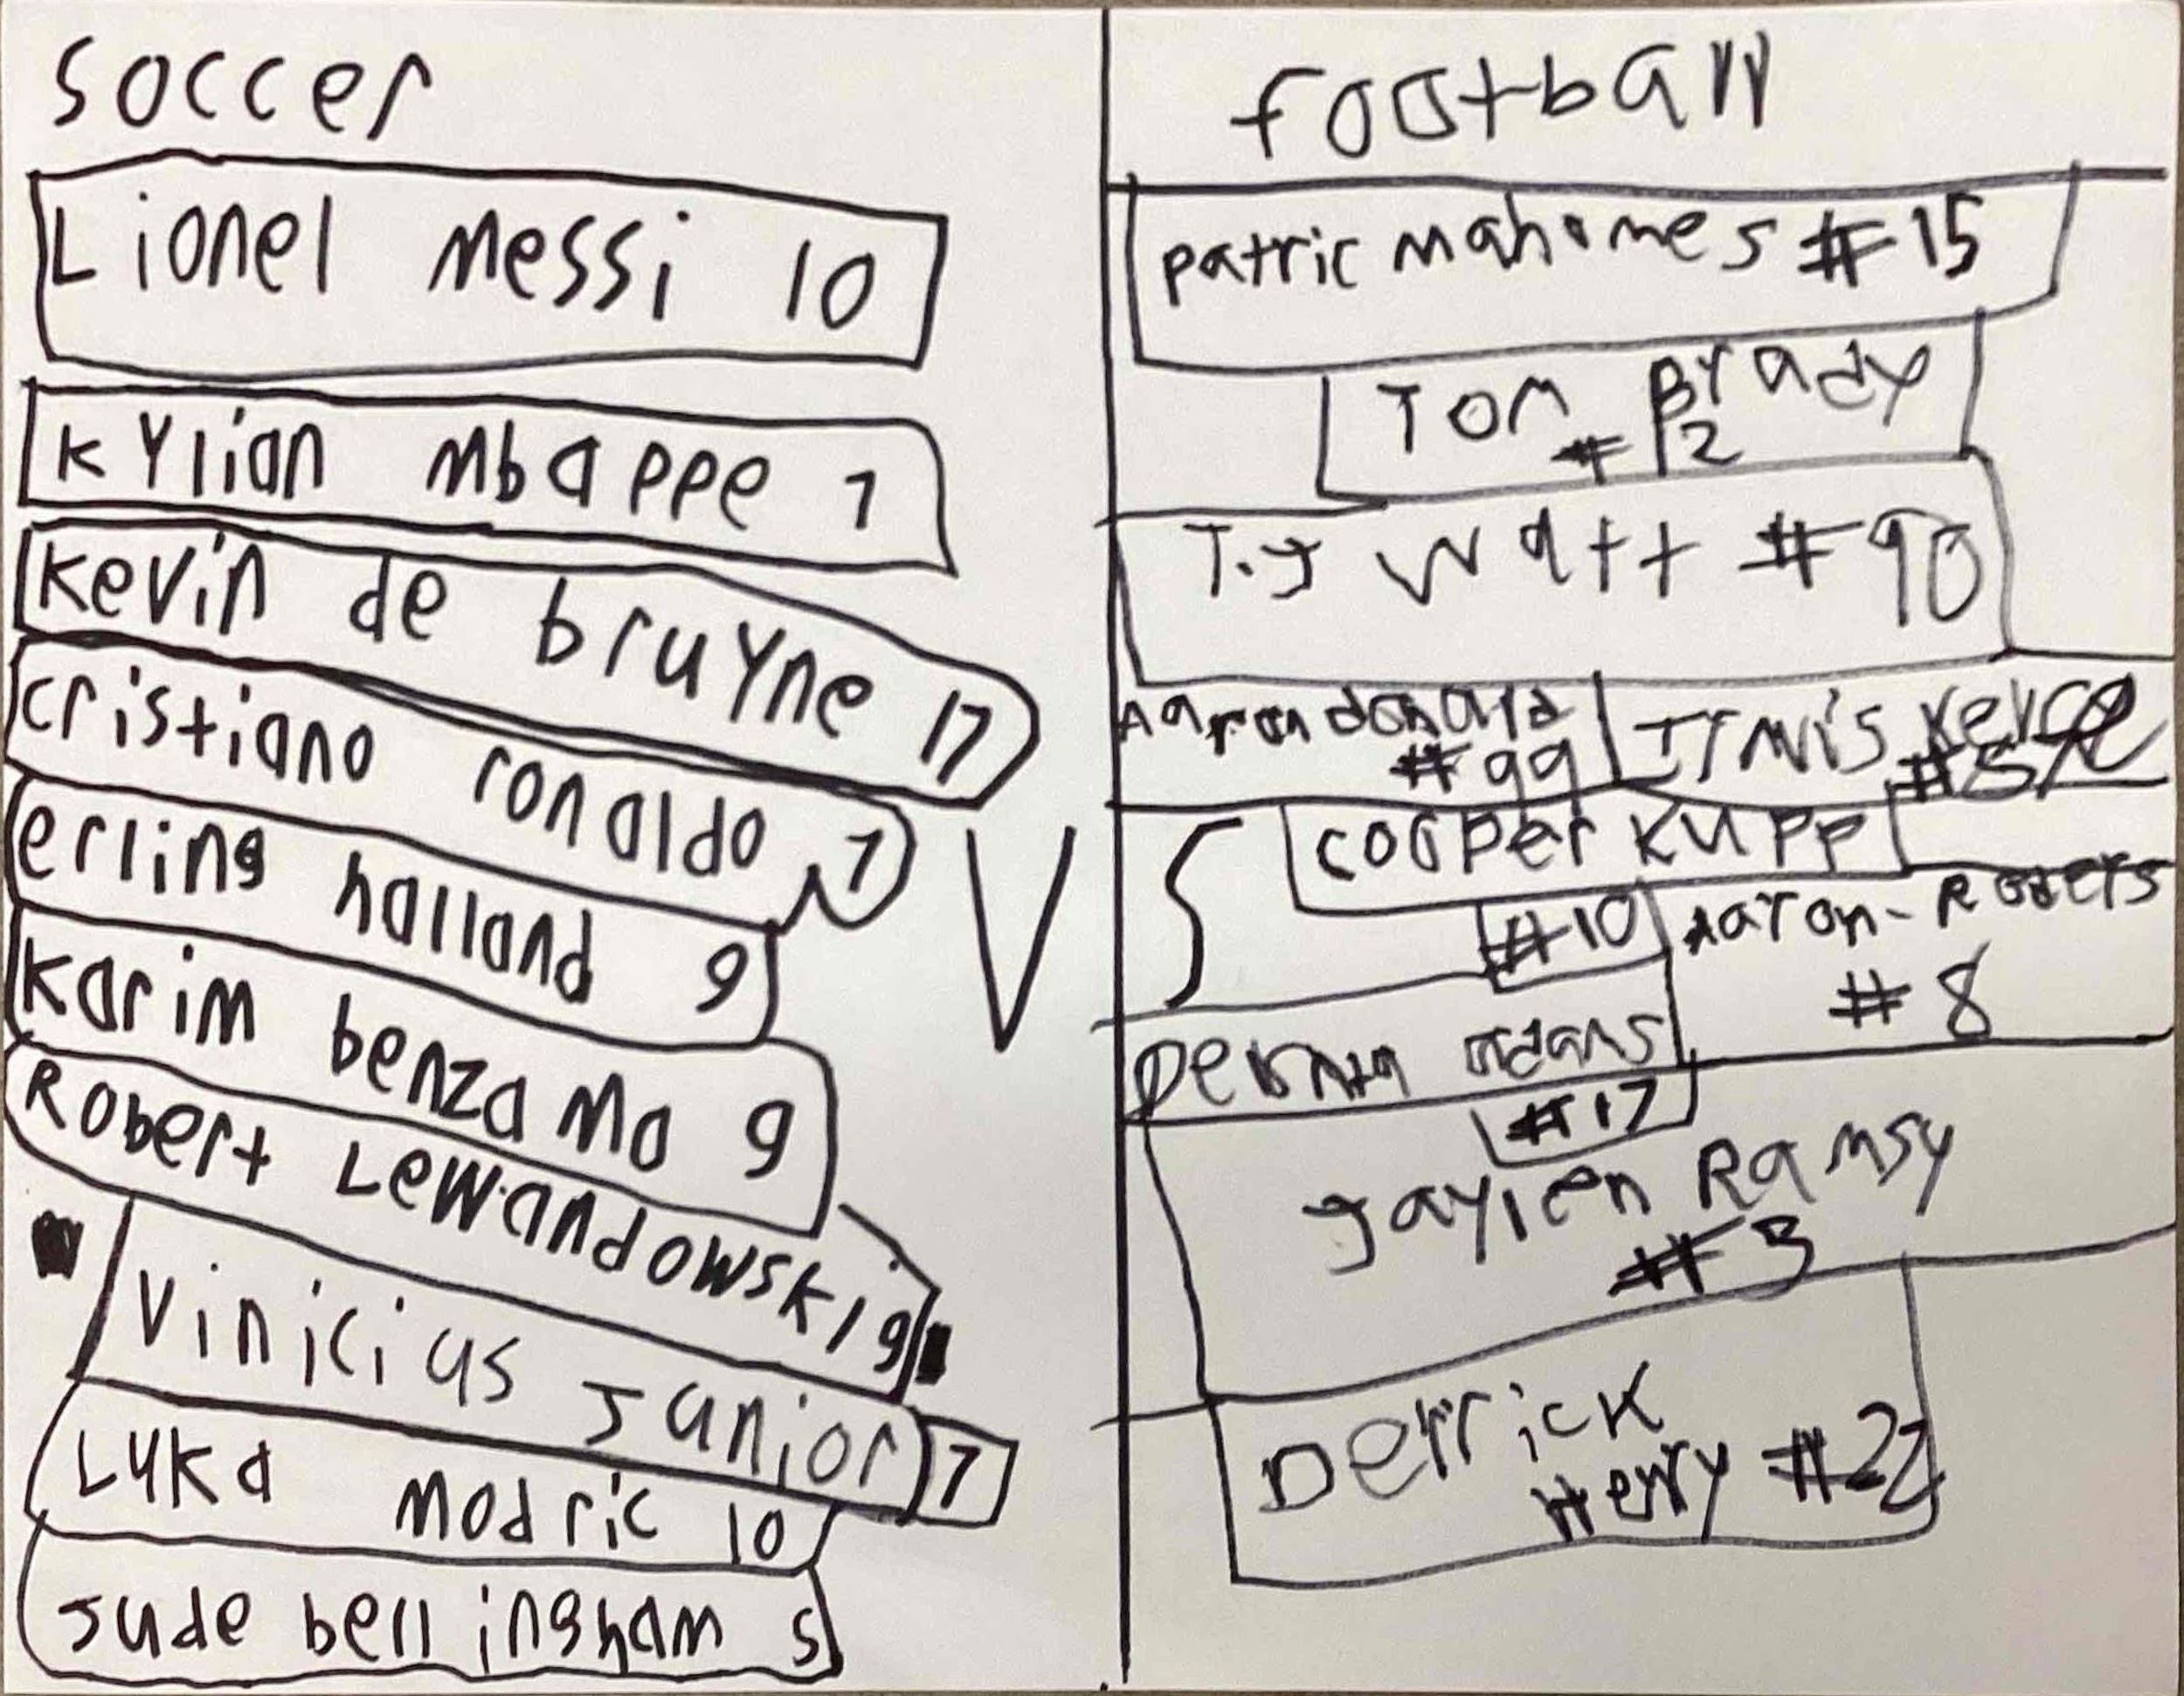 soccer
Lionel Messi 10
Kylian Mbappe 7
Kevin de bruyne 17
cristiano ronaldo 7
erling halland 9
Karim benzama 9
Robert Lewandowski 9
Vinicius Junior 7
Luka Modric 10
Jude bellingham 5
VS
football
Patric mahomes #15
Tom Brady
#12
T.J Watt #90
Aaron donald
#99
Kelce
#87
cooper Kupp
#10
Aaron-Rogers
#8
adams
#17
Jaylen Ramsy
#5
Derrick
Henry #22